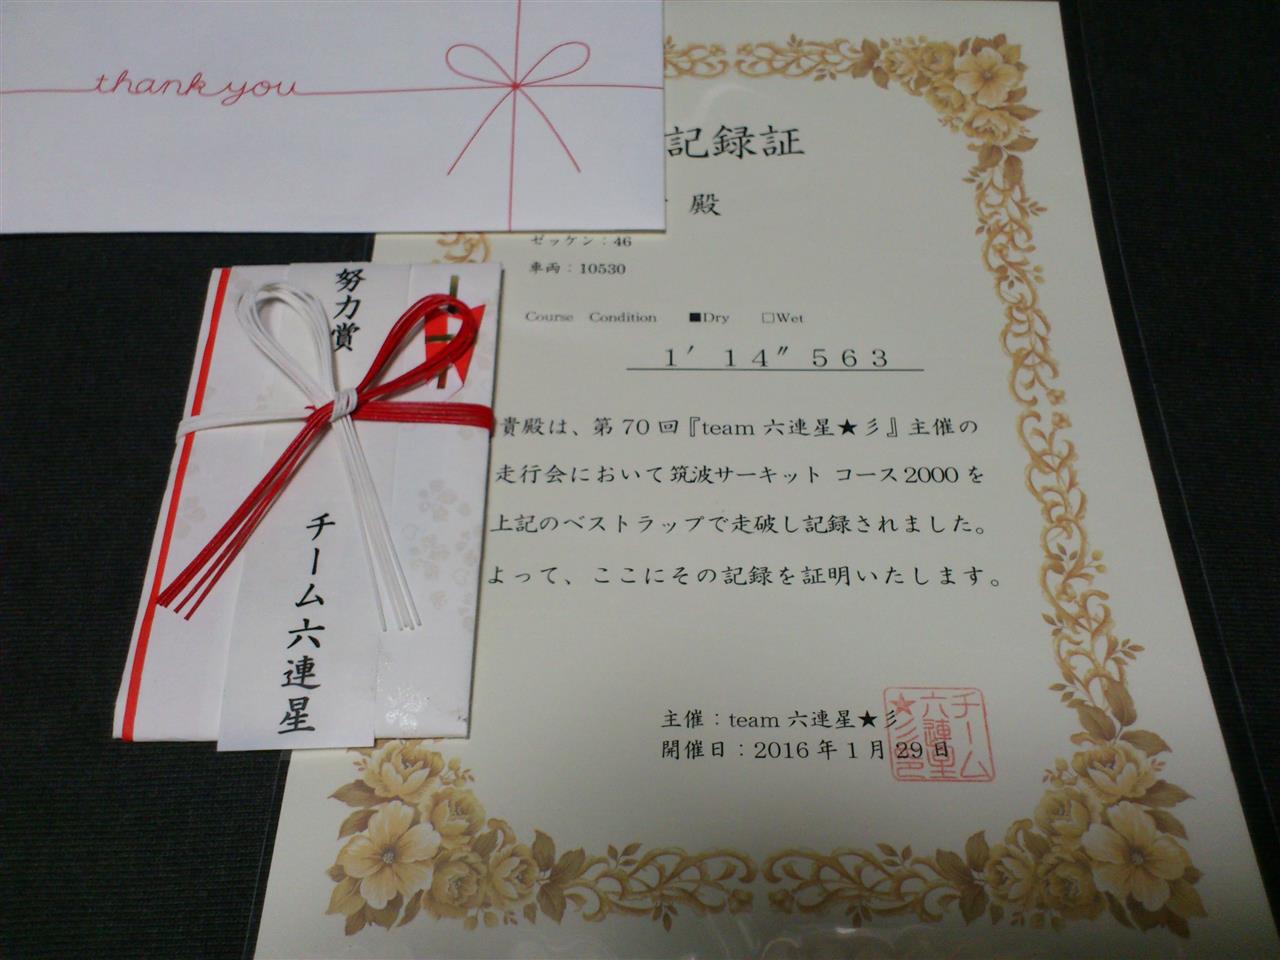 thank you
記録証
殿
ゼッケン：46
車両：10530
Course Condition ■Dry □Wet
1′14″563
貴殿は、第70回『team 六連星★彡』主催の
走行会において筑波サーキット コース2000を
上記のベストラップで走破し記録されました。
よって、ここにその記録を証明いたします。
主催：team 六連星★彡
開催日：2016年1月29日
チーム
六連星
★彡印
努力賞
チーム六連星